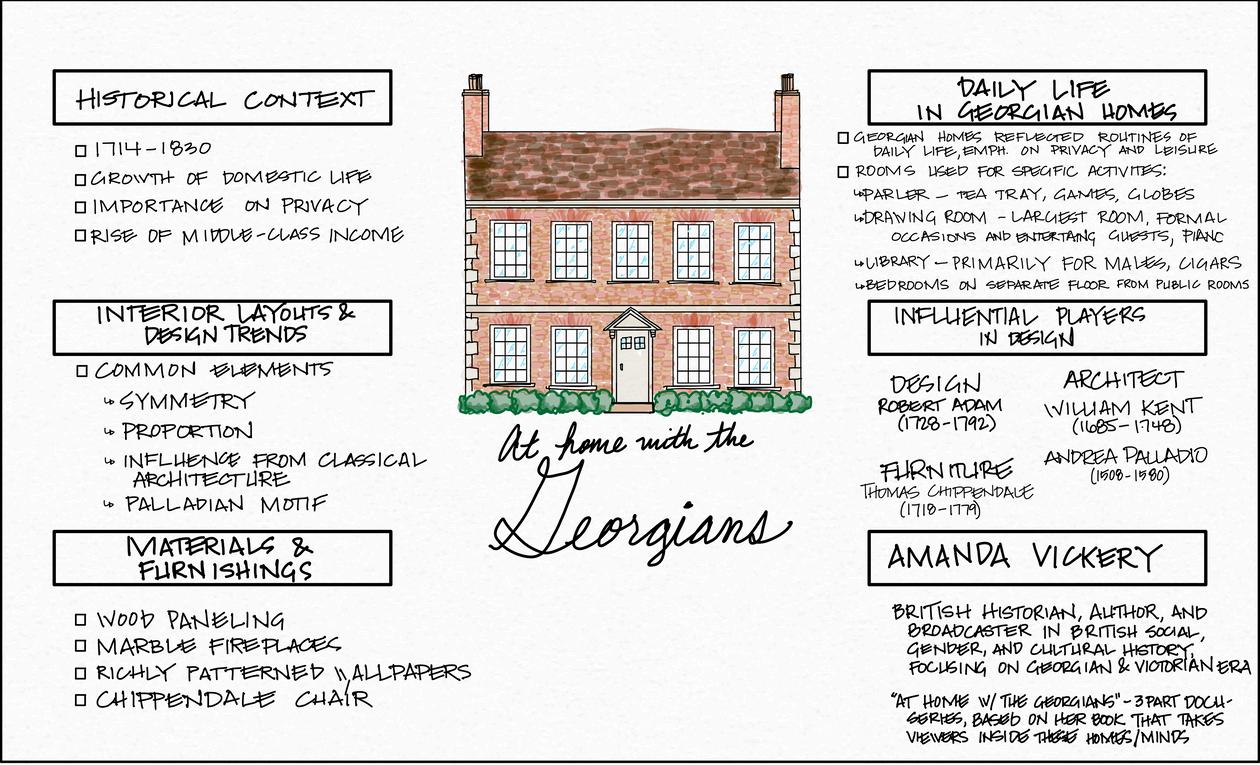 HISTORICAL CONTEXT
1714-1830
GROWTH OF DOMESTIC LIFE
IMPORTANCE ON PRIVACY
RISE OF MIDDLE-CLASS INCOME
INTERIOR LAYOUTS &
DESIGN TRENDS
COMMON ELEMENTS
↳ SYMMETRY
↳ PROPORTION
↳ INFLUENCE FROM CLASSICAL
ARCHITECTURE
↳ PALLADIAN MOTIF
MATERIALS &
FURNISHINGS
WOOD PANELING
MARBLE FIREPLACES
RICHLY PATTERNED WALLPAPERS
CHIPPENDALE CHAIR
At home with the
Georgians
DAILY LIFE
IN GEORGIAN HOMES
GEORGIAN HOMES REFLECTED ROUTINES OF
DAILY LIFE, EMPH. ON PRIVACY AND LEISURE
ROOMS USED FOR SPECIFIC ACTIVITES:
↳PARLER - TEA TRAY, GAMES, GLOBES
↳DRAWING ROOM - LARGEST ROOM, FORMAL
OCCASIONS AND ENTERTAING GUESTS, PIANO
↳LIBRARY - PRIMARILY FOR MALES, CIGARS
↳BEDROOMS ON SEPARATE FLOOR FROM PUBLIC ROOMS
INFLUENTIAL PLAYERS
IN DESIGN
DESIGN
ROBERT ADAM
(1728-1792)
FURNITURE
THOMAS CHIPPENDALE
(1718-1779)
ARCHITECT
WILLIAM KENT
(1685-1748)
ANDREA PALLADIO
(1508-1580)
AMANDA VICKERY
BRITISH HISTORIAN, AUTHOR, AND
BROADCASTER IN BRITISH SOCIAL,
GENDER, AND CULTURAL HISTORY,
FOCUSING ON GEORGIAN & VICTORIAN ERA
"AT HOME W/ THE GEORGIANS" - 3 PART DOCU-
SERIES, BASED ON HER BOOK THAT TAKES
VIEWERS INSIDE THESE HOMES/MINDS